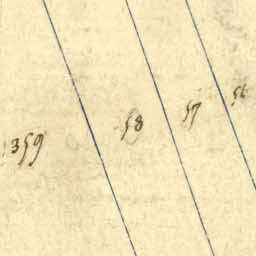 359
58
57
56